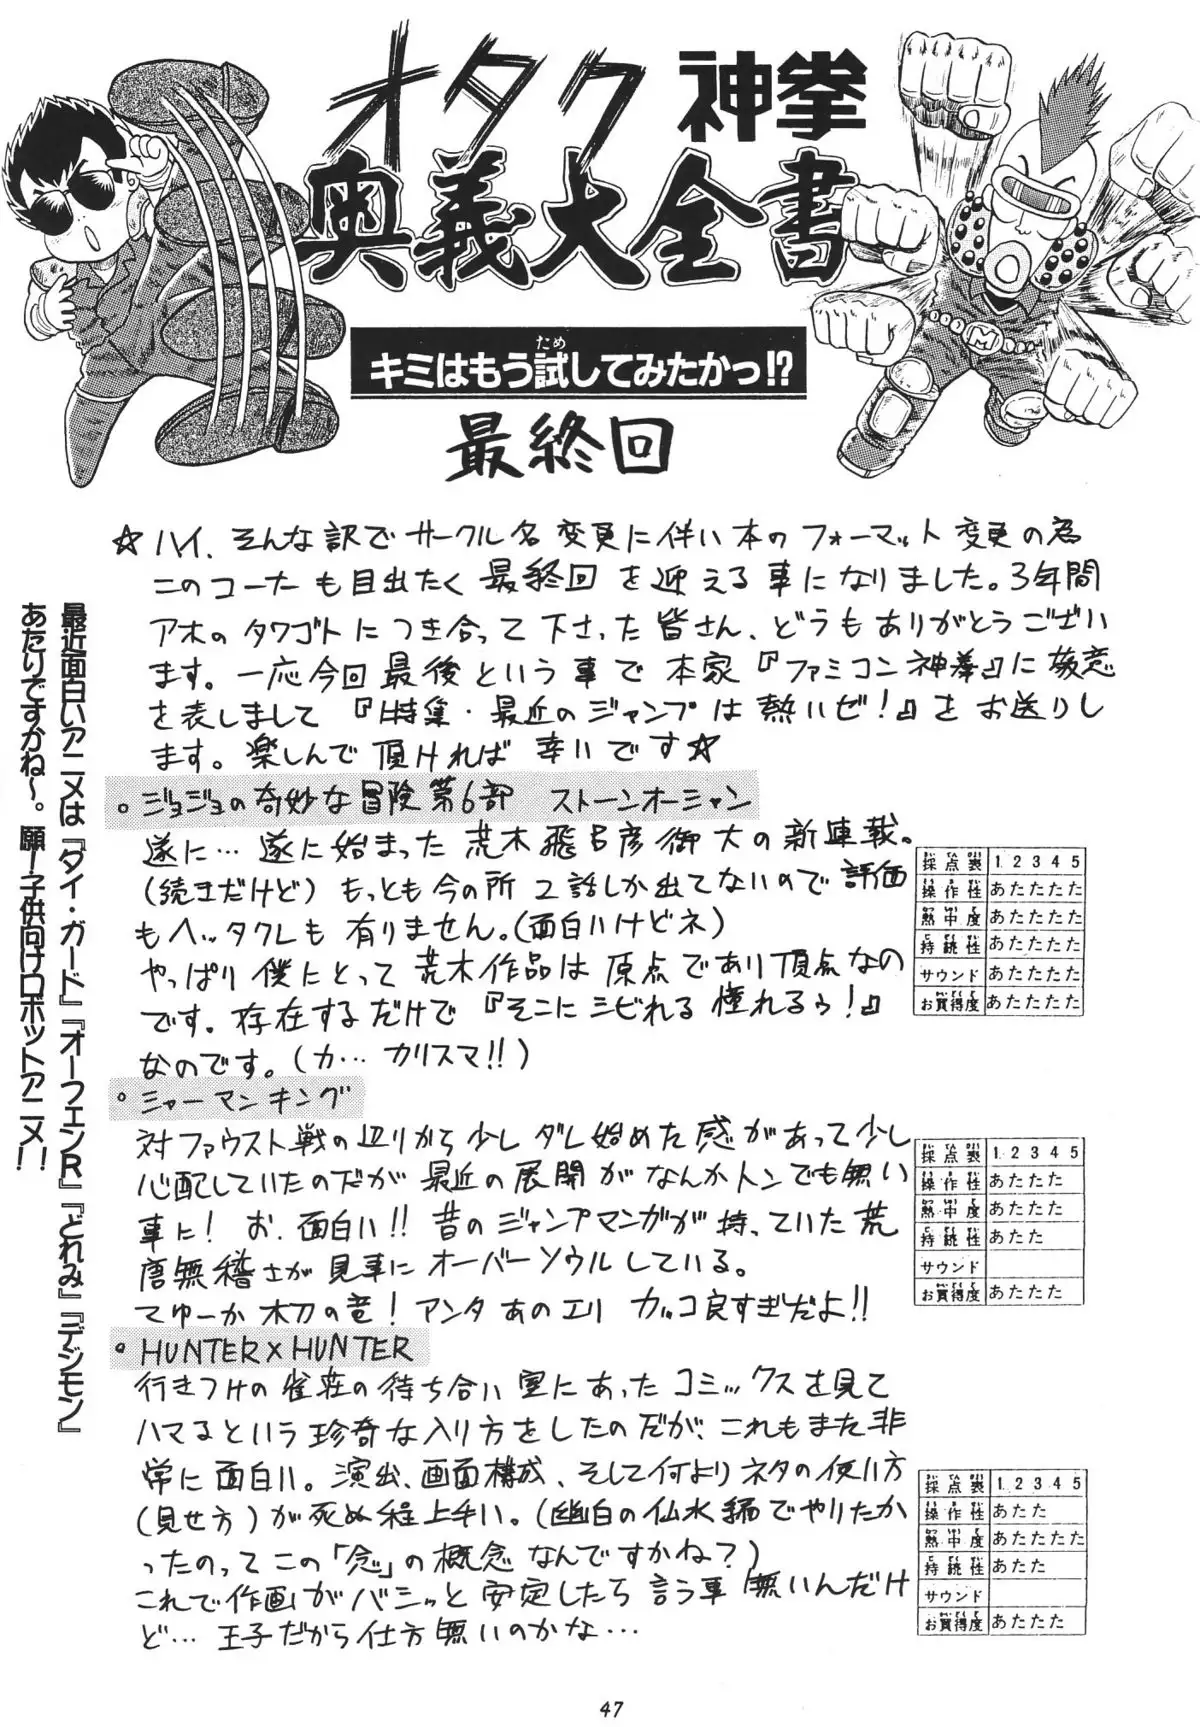 オタク神拳
奥義大全書
ため
キミはもう試してみたかっ!?
最終回
☆ハイ、そんな訳でサークル名変更に伴い本のフォーマット変更の為
このコーナーも目出たく最終回を迎える事になりました。3年間
アホのタワゴトにつき合って下さった皆さん、どうもありがとうござい
ます。一応今回最後という事で本家『ファミコン神拳』に敬意
を表しまして『特集・最近のジャンプは熱いぜ!』をお送りし
ます。楽しんで頂ければ幸いです☆
。ジョジョの奇妙な冒険第6部 ストーンオーシャン
遂に…遂に始まった荒木飛呂彦御大の新連載。
(続きだけど)もっとも今の所2話しか出てないので評価
もヘッタクレも有りません。(面白いけどネ)
やっぱり僕にとって荒木作品は原点であり頂点なの
です。存在するだけで『そこにシビれる憧れるゥ!』
なのです。(カ…カリスマ!!)
採点表 1 2 3 4 5
操作性 あたたたた
熱中度 あたたたた
持続性 あたたたた
サウンド あたたたた
お買得度 あたたたた
。シャーマンキング
対ファウスト戦の辺りから少しダレ始めた感があって少し
心配していたのだが最近の展開がなんかトンでも無い
事に!お、面白い!!昔のジャンプマンガが持っていた荒
唐無稽さが見事にオーバーソウルしている。
てゆーか木刀の竜!アンタあのエリカッコ良すぎだよ!!
採点表 1 2 3 4 5
操作性 あたたた
熱中度 あたたた
持続性 あたた
サウンド
お買得度 あたたた
。HUNTER×HUNTER
行きつけの雀荘の待ち合い室にあったコミックスを見て
ハマるという珍奇な入り方をしたのだが、これもまた非
常に面白い。演出、画面構成、そして何よりネタの使い方
(見せ方)が死ぬ程上手い。(幽白の仏水編でやりたか
ったのってこの「念」の概念なんですかね?)
これで作画がバシッと安定したら言う事無いんだけ
ど…王子だから仕方無いのかな…
採点表 1 2 3 4 5
操作性 あたた
熱中度 あたたたた
持続性 あたた
サウンド
お買得度 あたたた
最近面白いアニメは『ダイ・ガード』『オーフェンR』『どれみ』『デジモン』
あたりですかね〜。願!子供向けロボットアニメ!!
47
M